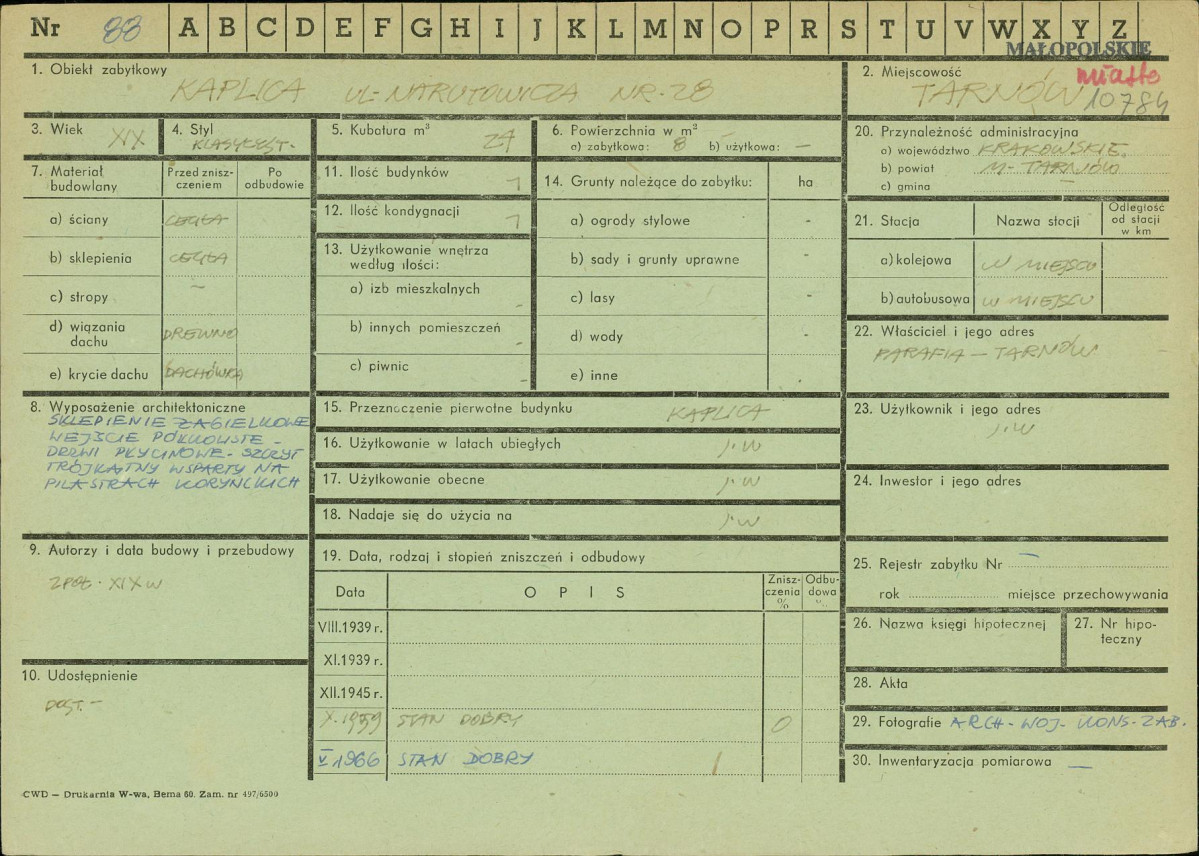 Nr 88 A B C D E F G H I J K L M N O P R S T U V W X Y Z
MAŁOPOLSKIE
1. Obiekt zabytkowy
KAPLICA UL-NARUTOWICZA NR-28
2. Miejscowość
miasto
TARNÓW 10784
3. Wiek XIX
4. Styl
KLASYCYST-
5. Kubatura m³ 24
6. Powierzchnia w m²
a) zabytkowa: 8 b) użytkowa: —
7. Materiał budowlany
Przed zniszczeniem
Po odbudowie
a) ściany CEGŁA
b) sklepienia CEGŁA
c) stropy —
d) wiązania dachu DREWNO
e) krycie dachu DACHÓWKA
8. Wyposażenie architektoniczne
SKLEPIENIE ŻAGIELKOWE
WEJŚCIE PÓŁKOLISTE -
DRZWI PŁYCINOWE - SZCZYT
TRÓJKĄTNY WSPARTY NA
PILASTRACH KORYNCKICH
9. Autorzy i data budowy i przebudowy
2 POŁ. XIX W
10. Udostępnienie
DOST. -
11. Ilość budynków 1
12. Ilość kondygnacji 1
13. Użytkowanie wnętrza według ilości:
a) izb mieszkalnych -
b) innych pomieszczeń -
c) piwnic -
14. Grunty należące do zabytku: ha
a) ogrody stylowe -
b) sady i grunty uprawne -
c) lasy -
d) wody -
e) inne -
15. Przeznaczenie pierwotne budynku KAPLICA
16. Użytkowanie w latach ubiegłych j.w
17. Użytkowanie obecne j.w
18. Nadaje się do użycia na j.w
19. Data, rodzaj i stopień zniszczeń i odbudowy
Data O P I S Zniszczenia % Odbudowa %
VIII.1939 r.
XI.1939 r.
XII.1945 r.
X.1959 STAN DOBRY 0
V 1966 STAN DOBRY
20. Przynależność administracyjna
a) województwo KRAKOWSKIE
b) powiat M- TARNÓW
c) gmina —
21. Stacja Nazwa stacji Odległość od stacji w km
a) kolejowa W MIEJSCU
b) autobusowa W MIEJSCU
22. Właściciel i jego adres
PARAFIA - TARNÓW
23. Użytkownik i jego adres
j.w
24. Inwestor i jego adres
25. Rejestr zabytku Nr —
rok miejsce przechowywania
26. Nazwa księgi hipotecznej
27. Nr hipoteczny
28. Akta
29. Fotografie ARCH- WOJ- KONS- ZAB.
30. Inwentaryzacja pomiarowa —
CWD — Drukarnia W-wa, Bema 60. Zam. nr 497/6500